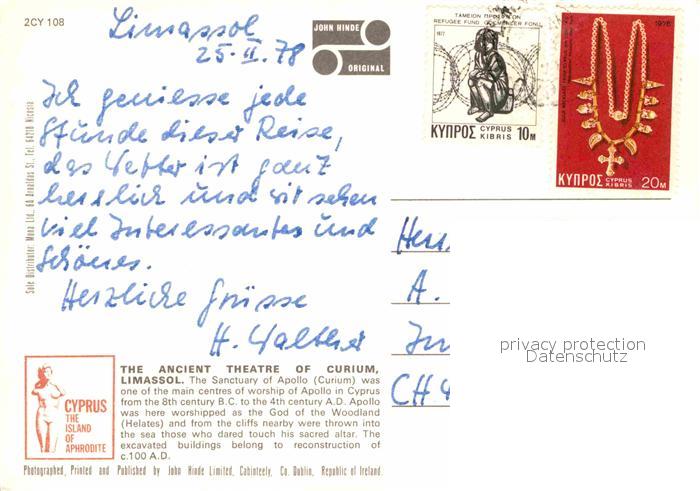 2CY 108
Limassol
25·II.78
JOHN HINDE
ORIGINAL
Ich geniesse jede
Stunde dieser Reise,
das Wetter ist ganz
herrlich und wir sehen
viel Interessantes und
Schönes.
Herzliche Grüsse
H. Walther
REFUGEE FUND
1977
ΚΥΠΡΟΣ CYPRUS KIBRIS 10M
1976
ΚΥΠΡΟΣ CYPRUS KIBRIS 20M
Herr
A.
CH
privacy protection
Datenschutz
Sole Distributor: Mona Ltd., Tel. 64218 Nicosia
CYPRUS
THE
ISLAND
OF
APHRODITE
THE ANCIENT THEATRE OF CURIUM,
LIMASSOL. The Sanctuary of Apollo (Curium) was
one of the main centres of worship of Apollo in Cyprus
from the 8th century B.C. to the 4th century A.D. Apollo
was here worshipped as the God of the Woodland
(Helates) and from the cliffs nearby were thrown into
the sea those who dared touch his sacred altar. The
excavated buildings belong to reconstruction of
c.100 A.D.
Photographed, Printed and Published by John Hinde Limited, Cabinteely, Co. Dublin, Republic of Ireland.